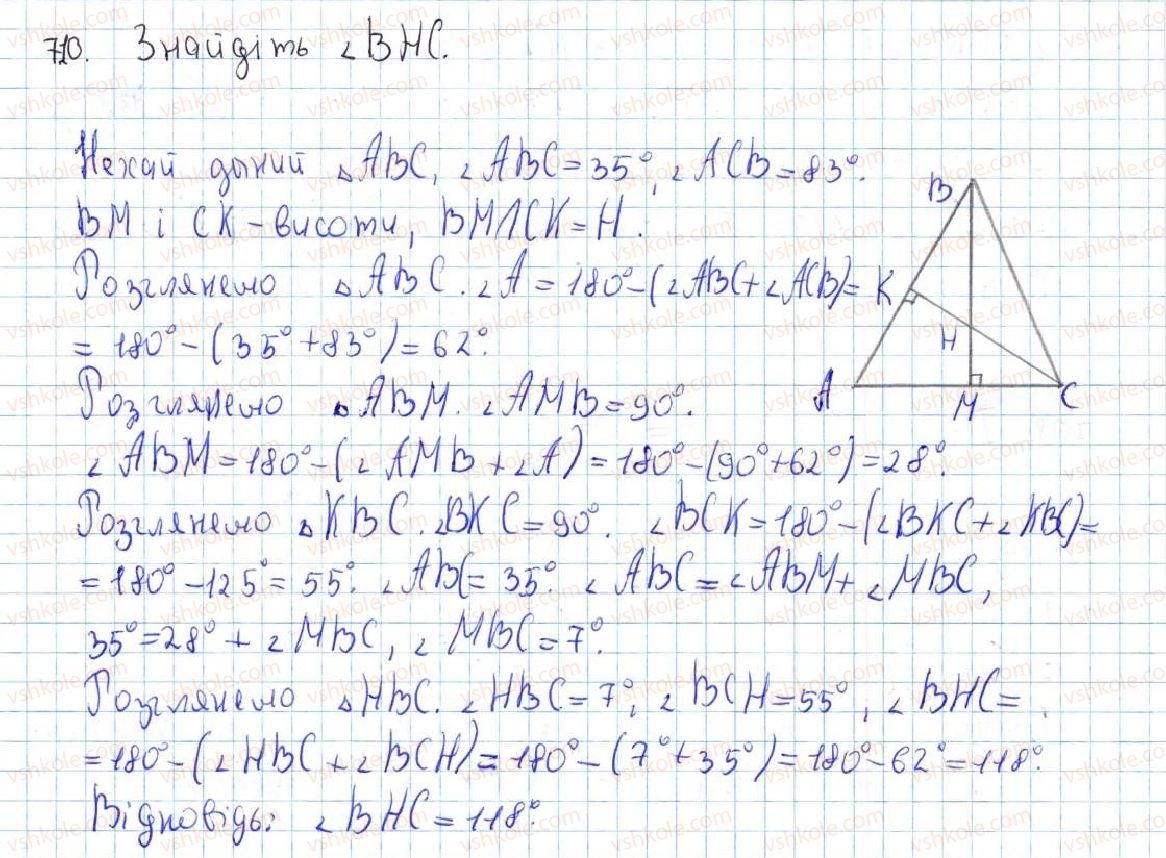 710. Знайдіть ∠BHC.
Нехай даний △ABC, ∠ABC=35°, ∠ACB=83°.
BM і CK-висоти, BM∩CK=H.
Розглянемо △ABC. ∠A=180°-(∠ABC+∠ACB)=
=180°-(35°+83°)=62°.
Розглянемо △ABM. ∠AMB=90°.
∠ABM=180°-(∠AMB+∠A)=180°-(90°+62°)=28°.
Розглянемо △KBC. ∠BKC=90°. ∠BCK=180°-(∠BKC+∠KBC)=
=180°-125°=55°. ∠ABC=35°. ∠ABC=∠ABM+∠MBC,
35°=28°+∠MBC, ∠MBC=7°.
Розглянемо △HBC. ∠HBC=7°, ∠BCH=55°, ∠BHC=
=180°-(∠HBC+∠BCH)=180°-(7°+35°)=180°-62°=118°.
Відповідь: ∠BHC=118°.
B
K
H
A M C
vshkole.com